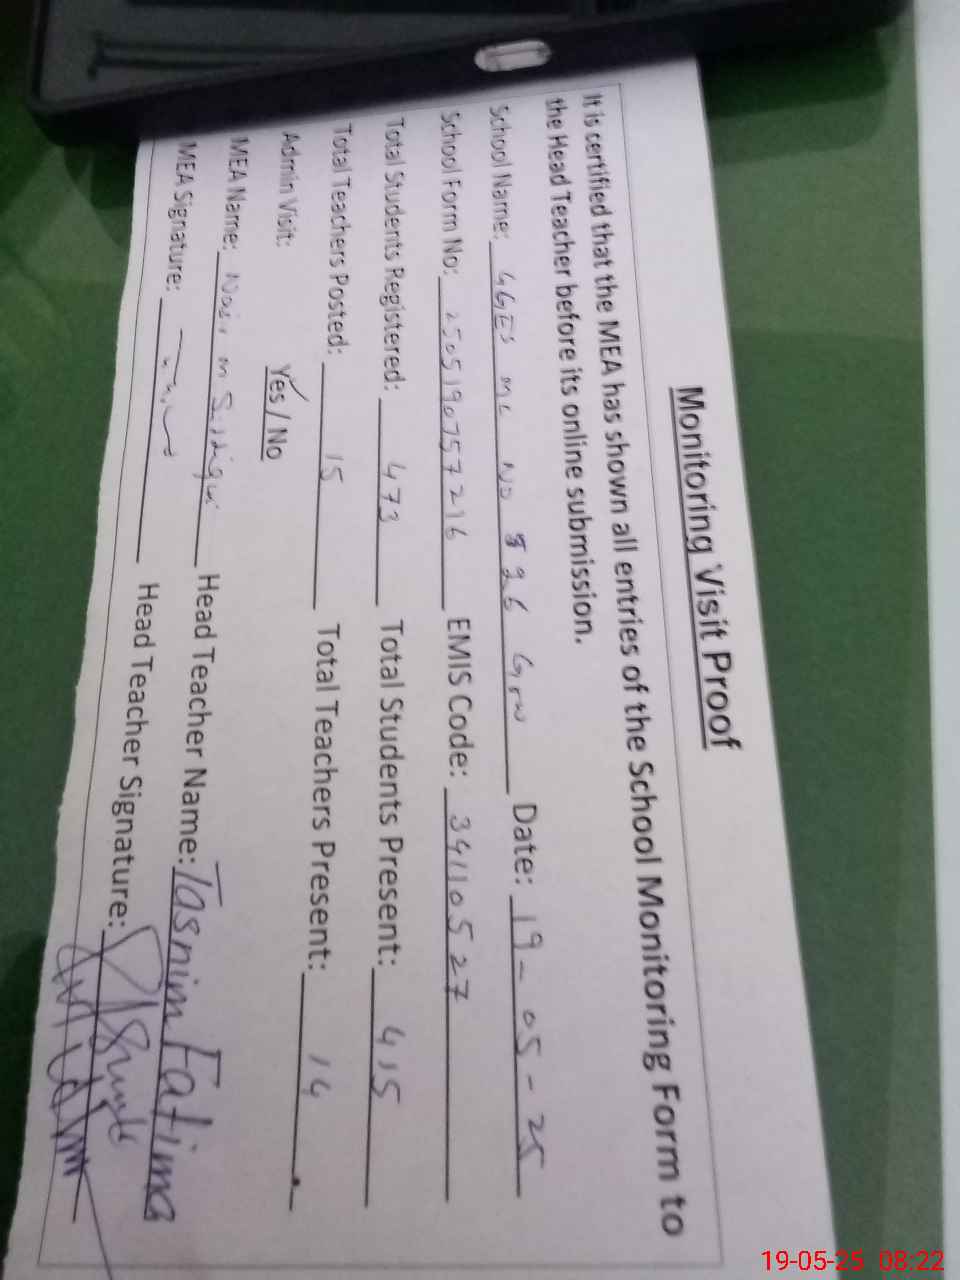 Monitoring Visit Proof
It is certified that the MEA has shown all entries of the School Monitoring Form to
the Head Teacher before its online submission.
School Name: GGES MC NO 926 Grw Date: 19-05-25
School Form No: 2505190757216 EMIS Code: 34110527
Total Students Registered: 473 Total Students Present: 415
Total Teachers Posted: 15 Total Teachers Present: 14
Admin Visit: Yes / No
MEA Name: Nasir m Siddiqui Head Teacher Name: Tasnim Fatima
MEA Signature: Head Teacher Signature:
19-05-25 08:22